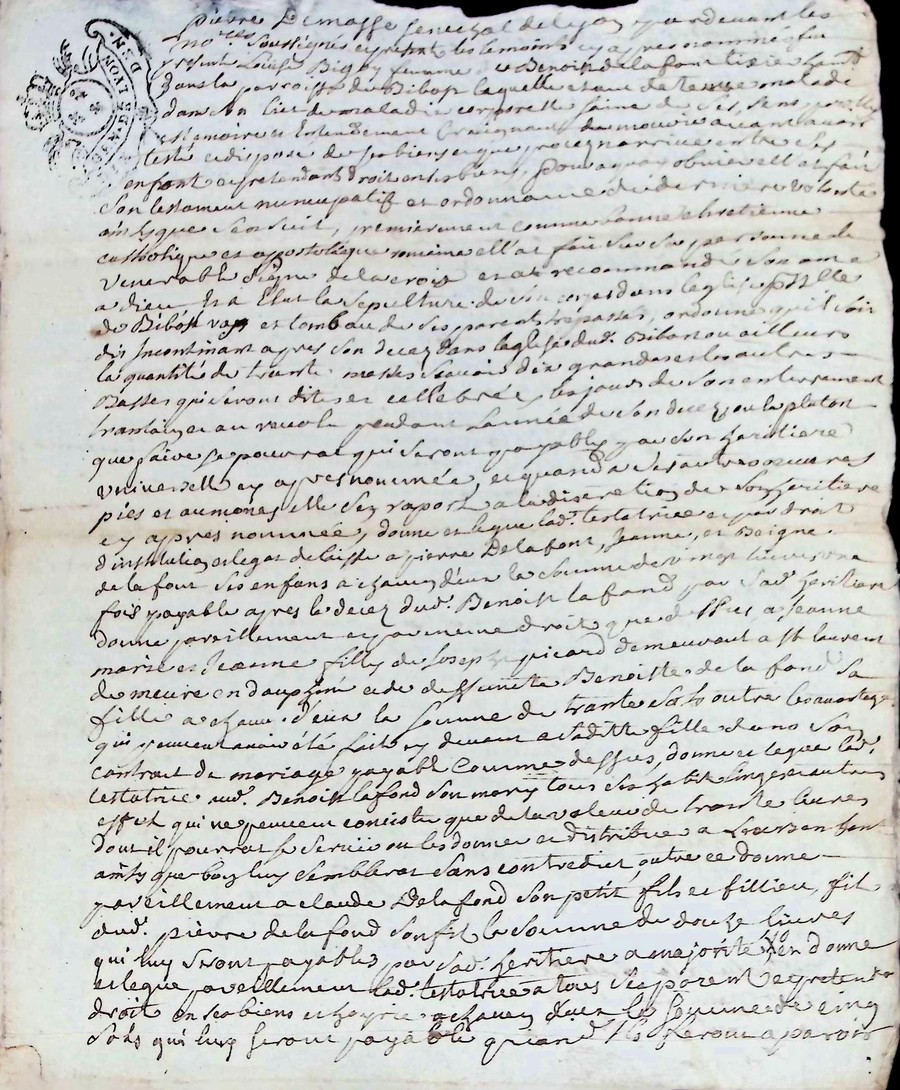 pierre Demasse senechal de lyon pardevant les
no.res soussignés et present les temoins cy apres nommes fut
present Louise femme de Benoist dela font
dans la parroisse de Bibost laquelle etant detenue malade
dans un lict de maladie corporelle saine de ses sens
memoire et entendement craignant de mourir avant avoir
testé et disposé de ses biens et que proces n'arrive entre ses
enfant et pretendant droit en ses biens, pour a quoy obvier elle at fait
son testament nuncupatif et ordonnance de derniere volonté
ainsy que sensuit, premierement comme bonne chretienne
catholique et apostolique romaine elle at fait sur sa personne le
venerable signe de la croix et at recommandé son ame
a dieu et a Elut la sepulture de son corps dans leglise parlle
de Bibost et tombau de ses parents trepassés, ordonne qu'il soit
dis Incontinant apres son decez dans leglise dud. Bibost ou ailleurs
la quantité de trante messes scavoir dix grandes et les autres
Basses qui seront dites et cellebrées les jours de son enterrement
trantain et au reuolu pendant lannée de son decez ou la plutot
que faire se pourrat qui seront payables par son heritiere
universelle cy apres nommée, et quand a ses autres oeuvres
pies et aumones elle sen raport a la discretion de son heritiere
cy apres nommée, donne et legue lad. testatrice et par droit
d'institution et legat delaisse a pierre Delafont, Jeanne, et
de la font ses enfans a chacun d'eux la somme de vingt livres une
fois payable apres le decez dud. Benoist lafond par sad. heritiere
donne pareillement et par meme droit que dessus a Jeanne
marie et Jeanne filles de Joseph picard demeurant a st laurent
de meure en dauphiné et de deffuncte Benoiste de la fond sa
fille a chacune d'eux la somme de trante sols outre les avantages
qui peuvent avoir été fait cy devant a sadite fille dans son
contrait de mariage payable comme dessus, donne et legue lad.
testatrice aud. Benoist lafond son mary tous ses habit linges et autres
effet qui ne peuvent concister que de la valeur de trante livres
dont il pourrat se servir ou les donner et distribuer a leurs enfant
ainsy que bon luy semblerat sans contredit, outre ce donne
pareillement a claude Delafond son petit fils et fillieu, fils
dud. pierre de la fond son fils la somme de douze livres
qui luy seront payables par sad. heritiere a majorité donne
et legue pareillement lad. testatrice a tous ses parent et pretendt
droit en ses biens et hoyrie a chacun d'eux la somme de cinq
sols qui luy seront payable quand ils feront aparoir